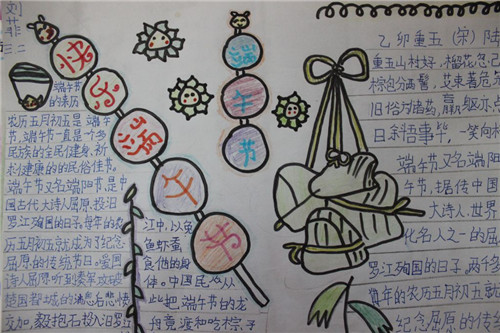 刘菲
快乐端午节
端午节
端午节
的来历
农历五月初五是端午
节,端午节一直是一个多
民族的全民健身,祈
求健康的的民俗佳节。
端午节又名端阳节,是中
国古代大诗人屈原,投汨
罗江殉国的日子,每年的农
历五月初五就成为了纪念
屈原的传统节日。爱国
诗人屈原听到秦军攻破
楚国都城的消息后悲愤
交加,毅抱石投入汨罗
江中,以免
鱼虾蚕
食他的身
体。中国民众从
此把端午节的龙
舟竞渡和吃粽子
乙卯重五(宋)陆
重五山村好,榴花忽已
粽包分两髻,艾束着危
旧俗方储药,羸躯亦
日斜吾事毕,一笑向
端午节又名端阳
午节,据传中国
大诗人.世界
化名人之一的屈
罗江殉国的日子,两千多
每年的农历五月初五就
纪念屈原的传